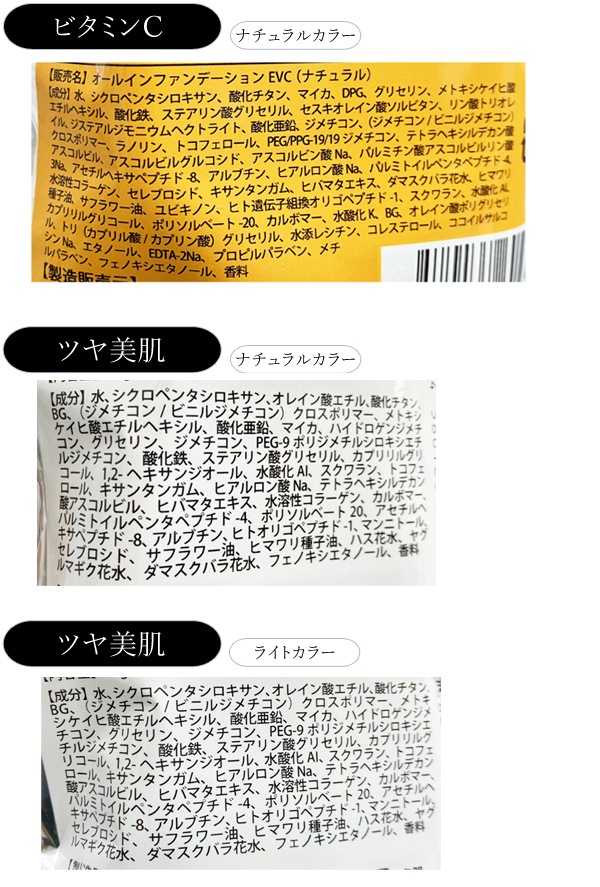 ビタミンC
ナチュラルカラー
【販売名】オールインファンデーション EVC（ナチュラル）
【成分】水、シクロペンタシロキサン、酸化チタン、マイカ、DPG、グリセリン、メトキシケイヒ酸
エチルヘキシル、酸化鉄、ステアリン酸グリセリル、セスキオレイン酸ソルビタン、リン酸トリオレ
イル、ジステアルジモニウムヘクトライト、酸化亜鉛、ジメチコン、（ジメチコン / ビニルジメチコン）
クロスポリマー、ラノリン、トコフェロール、PEG/PPG-19/19 ジメチコン、テトラヘキシルデカン酸
アスコルビル、アスコルビルグルコシド、アスコルビン酸 Na、パルミチン酸アスコルビルリン酸
3Na、アセチルヘキサペプチド -8、アルブチン、ヒアルロン酸 Na、パルミトイルペンタペプチド -4、
水溶性コラーゲン、セレブロシド、キサンタンガム、ヒバマタエキス、ダマスクバラ花水、ヒマワリ
種子油、サフラワー油、ユビキノン、ヒト遺伝子組換オリゴペプチド -1、スクワラン、水酸化 Al、
カプリリルグリコール、ポリソルベート -20、カルボマー、水酸化 K、BG、オレイン酸ポリグリセリ
ル、トリ（カプリル酸 / カプリン酸）グリセリル、水添レシチン、コレステロール、ココイルサルコ
シン Na、エタノール、EDTA-2Na、プロピルパラベン、メチ
ルパラベン、フェノキシエタノール、香料
【製造販売元】
ツヤ美肌
ナチュラルカラー
【成分】水、シクロペンタシロキサン、オレイン酸エチル、酸化チタン、
BG、（ジメチコン / ビニルジメチコン）クロスポリマー、メトキシ
ケイヒ酸エチルヘキシル、酸化亜鉛、マイカ、ハイドロゲンジメチ
コン、グリセリン、ジメチコン、PEG-9 ポリジメチルシロキシエチ
ルジメチコン、酸化鉄、ステアリン酸グリセリル、カプリリルグリ
コール、1,2- ヘキサンジオール、水酸化 Al、スクワラン、トコフェ
ロール、キサンタンガム、ヒアルロン酸 Na、テトラヘキシルデカン
酸アスコルビル、ヒバマタエキス、水溶性コラーゲン、カルボマー、
パルミトイルペンタペプチド -4、ポリソルベート 20、アセチルヘ
キサペプチド -8、アルブチン、ヒトオリゴペプチド -1、マンニトール、
セレブロシド、サフラワー油、ヒマワリ種子油、ハス花水、ヤグ
ルマギク花水、ダマスクバラ花水、フェノキシエタノール、香料
ツヤ美肌
ライトカラー
【成分】水、シクロペンタシロキサン、オレイン酸エチル、酸化チタン、
BG、（ジメチコン / ビニルジメチコン）クロスポリマー、メトキ
シケイヒ酸エチルヘキシル、酸化亜鉛、マイカ、ハイドロゲンジメ
チコン、グリセリン、ジメチコン、PEG-9 ポリジメチルシロキシエ
チルジメチコン、酸化鉄、ステアリン酸グリセリル、カプリリルグ
リコール、1,2- ヘキサンジオール、水酸化 Al、スクワラン、トコフェ
ロール、キサンタンガム、ヒアルロン酸 Na、テトラヘキシルデカン
酸アスコルビル、ヒバマタエキス、水溶性コラーゲン、カルボマー、
パルミトイルペンタペプチド -4、ポリソルベート 20、アセチルヘ
キサペプチド -8、アルブチン、ヒトオリゴペプチド -1、マンニトール、
セレブロシド、サフラワー油、ヒマワリ種子油、ハス花水、ヤグ
ルマギク花水、ダマスクバラ花水、フェノキシエタノール、香料